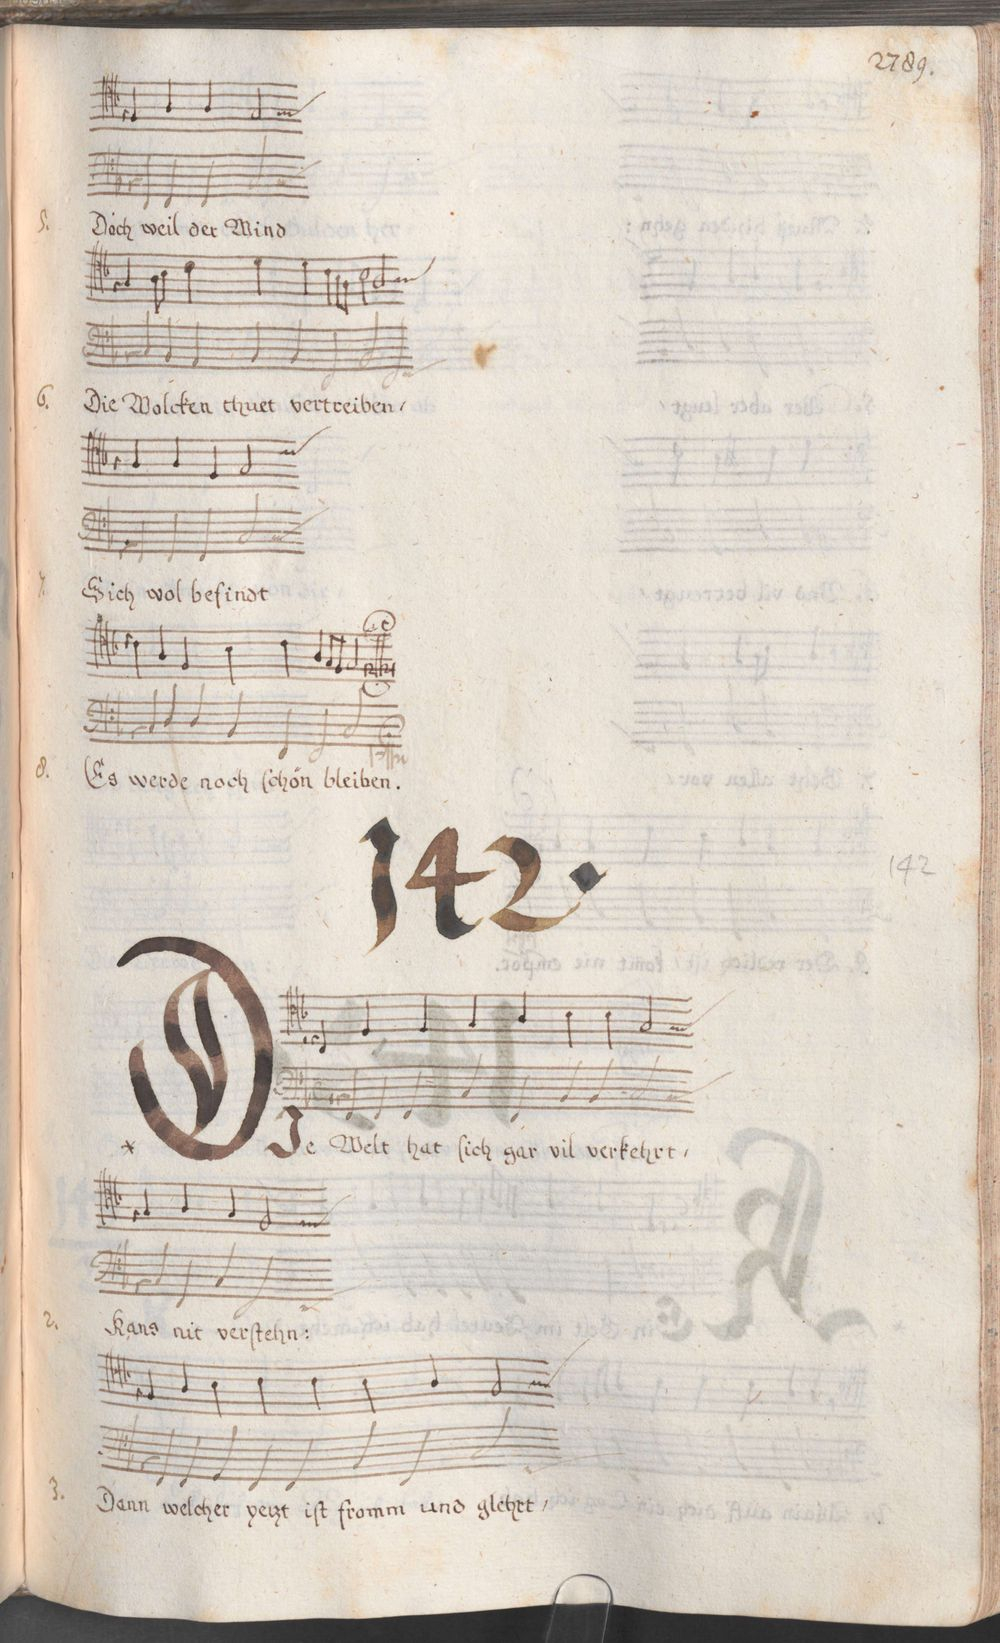 2789.
5. Doch weil der Wind
6. Die Wolcken thuet vertreiben,
7. Sich wol befindt
8. Es werde noch schön bleiben.
142.
142
* DIe Welt hat sich gar vil verkehrt,
2. Kans nit verstehn:
3. Dann welcher yetzt ist fromm und glehrt,